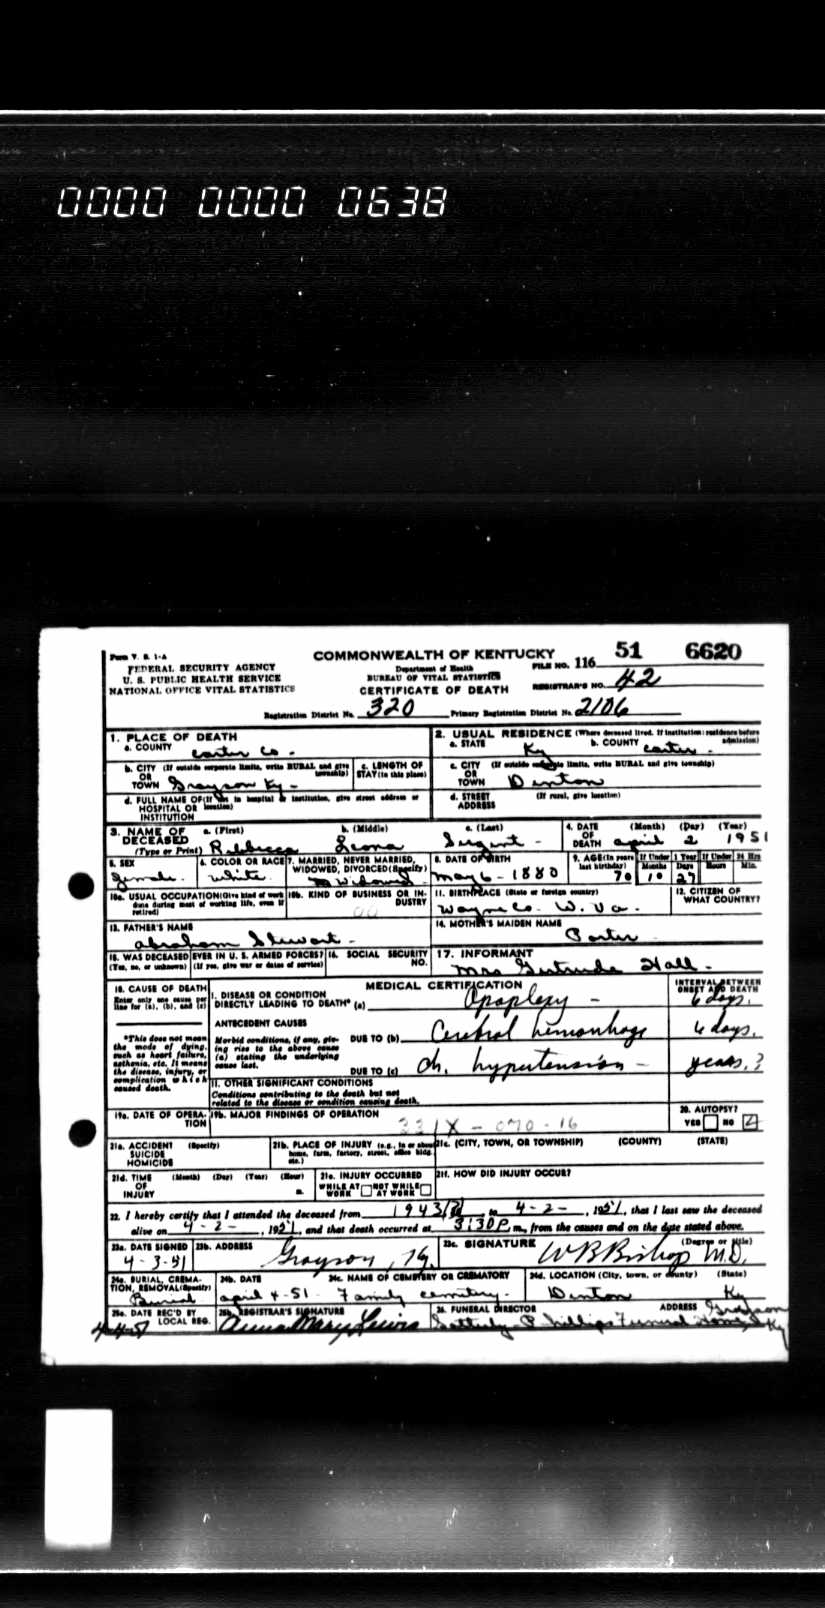 0000 0000 0638
Form V. S. 1-A
FEDERAL SECURITY AGENCY
U. S. PUBLIC HEALTH SERVICE
NATIONAL OFFICE VITAL STATISTICS
COMMONWEALTH OF KENTUCKY
Department of Health
BUREAU OF VITAL STATISTICS
CERTIFICATE OF DEATH
51 6620
FILE NO. 116
REGISTRAR'S NO. 42
Registration District No. 320 Primary Registration District No. 2106
1. PLACE OF DEATH
a. COUNTY Carter Co.
2. USUAL RESIDENCE (Where deceased lived. If institution: residence before admission)
a. STATE Ky b. COUNTY Carter.
b. CITY (If outside corporate limits, write RURAL and give township)
OR
TOWN Grayson Ky-
c. LENGTH OF
STAY (in this place)
c. CITY (If outside corporate limits, write RURAL and give township)
OR
TOWN Denton
d. FULL NAME OF (If not in hospital or institution, give street address or location)
HOSPITAL OR
INSTITUTION
d. STREET (If rural, give location)
ADDRESS
3. NAME OF DECEASED
(Type or Print)
a. (First) b. (Middle) c. (Last)
Rebbecca Leona Sergent -
4. DATE OF DEATH (Month) (Day) (Year)
April 2 1951
5. SEX
female.
6. COLOR OR RACE
white
7. MARRIED, NEVER MARRIED,
WIDOWED, DIVORCED (Specify)
Widowed
8. DATE OF BIRTH
May 6 - 1880
9. AGE (In years last birthday) If Under 1 Year If Under 24 Hrs
Months Days Hours Min.
70 10 27
10a. USUAL OCCUPATION (Give kind of work done during most of working life, even if retired)
10b. KIND OF BUSINESS OR INDUSTRY
11. BIRTHPLACE (State or foreign country)
Wayne Co. W. Va.
12. CITIZEN OF WHAT COUNTRY?
13. FATHER'S NAME
Abraham Stewart -
14. MOTHER'S MAIDEN NAME
Porter
15. WAS DECEASED EVER IN U. S. ARMED FORCES?
(Yes, no, or unknown) (If yes, give war or dates of service)
16. SOCIAL SECURITY NO.
17. INFORMANT
Mrs Gertrude Hall -
18. CAUSE OF DEATH
Enter only one cause per line for (a), (b), and (c)
*This does not mean the mode of dying, such as heart failure, asthenia, etc. It means the disease, injury, or complication which caused death.
MEDICAL CERTIFICATION
INTERVAL BETWEEN ONSET AND DEATH
I. DISEASE OR CONDITION
DIRECTLY LEADING TO DEATH* (a) Apoplexy - 6 days.
ANTECEDENT CAUSES
Morbid conditions, if any, giving rise to the above cause (a) stating the underlying cause last.
DUE TO (b) Cerebral hemorrhage 6 days.
DUE TO (c) Ch. hypertension - years.?
II. OTHER SIGNIFICANT CONDITIONS
Conditions contributing to the death but not
related to the disease or condition causing death.
19a. DATE OF OPERATION
19b. MAJOR FINDINGS OF OPERATION
331X - 070 - 16
20. AUTOPSY?
YES NO
21a. ACCIDENT (Specify)
SUICIDE
HOMICIDE
21b. PLACE OF INJURY (e.g., in or about home, farm, factory, street, office bldg. etc.)
21c. (CITY, TOWN, OR TOWNSHIP) (COUNTY) (STATE)
21d. TIME (Month) (Day) (Year) (Hour)
OF
INJURY m.
21e. INJURY OCCURRED
WHILE AT WORK NOT WHILE AT WORK
21f. HOW DID INJURY OCCUR?
22. I hereby certify that I attended the deceased from 1943 to 4-2-, 1951, that I last saw the deceased
alive on 4-2-, 1951, and that death occurred at 3:30 P. m., from the causes and on the date stated above.
23a. DATE SIGNED
4-3-51
23b. ADDRESS
Grayson, Ky.
23c. SIGNATURE (Degree or title)
W B Bishop M.D.
24a. BURIAL, CREMATION, REMOVAL (Specify)
Burial
24b. DATE
April 4-51-
24c. NAME OF CEMETERY OR CREMATORY
Family cemetery.
24d. LOCATION (City, town, or county) (State)
Denton Ky
25a. DATE REC'D BY LOCAL REG.
4-4-51
25b. REGISTRAR'S SIGNATURE
Anna Mary Lewis
26. FUNERAL DIRECTOR ADDRESS
Phillips Funeral Home, Grayson Ky